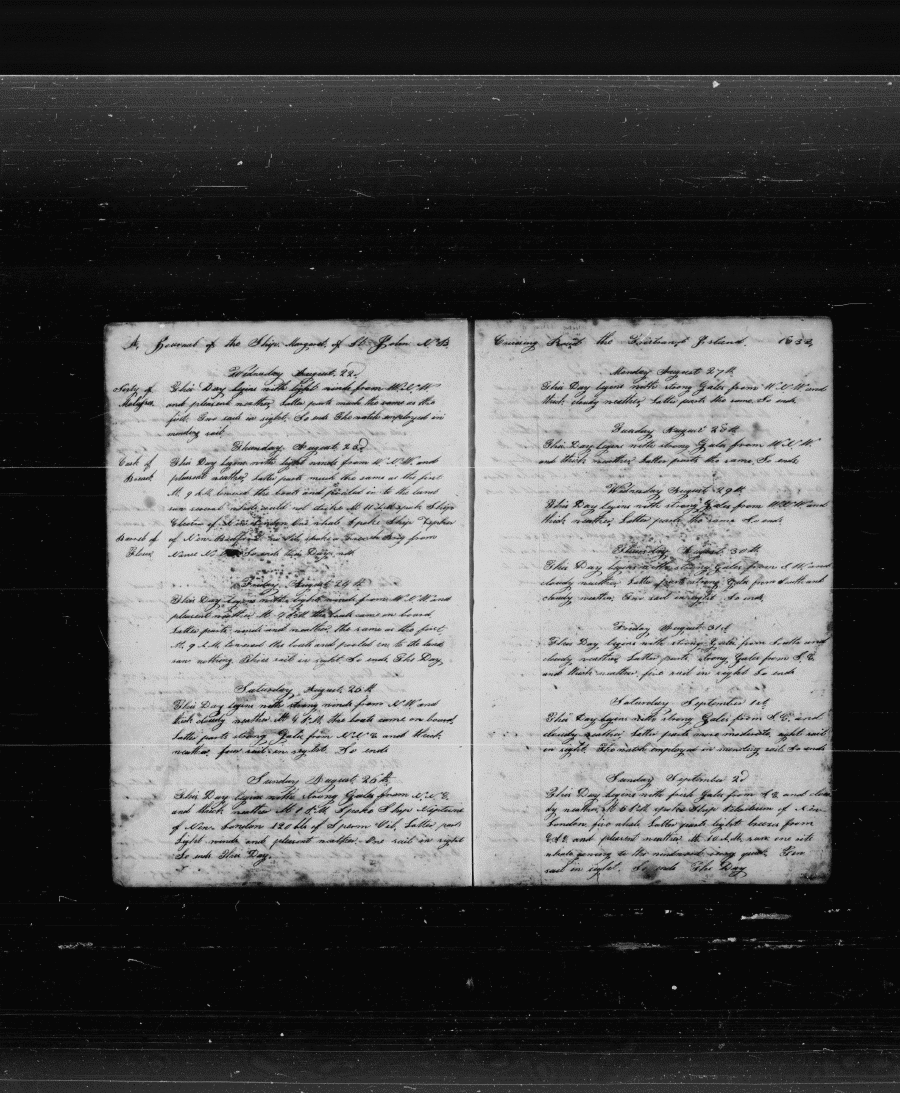 A Journal of the Ship Margaret of St. John N. B.
Wednesday August 22d
This Day begins with light winds from W.N.W
and pleasant weather, Latter parts much the same as the
first. One sail in sight. So ends The watch employed in
mending sail
Thursday August 23d
Cask of
Bread
This Day begins with light winds from W.N.W. and
pleasant weather, Latter parts much the same as the first
At 9 A.M. lowered the boats and pulled in to the land
saw several whales could not strike At 11 A.M. spoke Ship
of New London whale Spoke Ship
Barrel of
Flour
of New Bedford spoke a Brig from
So ends this Day
Friday August 24th
This Day begins with light winds from W.N.W and
pleasant weather At 7 P.M. the boats came on board
Latter parts winds and weather, the same as the first
At 9 A.M. lowered the boats and pulled in to the land
saw nothing. Three sail in sight So ends This Day,
Saturday August 25th
This Day begins with strong winds from N.W and
thick cloudy weather At 6 P.M. the boats came on board,
Latter parts strong Gale from N.N.E and thick
weather, four sail in sight. So ends
Sunday August 26th
This Day begins with strong Gale from N.N.E,
and thick weather At 1 P.M. Spoke Ship Neptune
of New London 120 bls of Sperm Oil, Latter parts
light winds and pleasant weather. One sail in sight
So ends This Day.
Cruising Round the Island. 1832
Monday August 27th
This Day begins with strong Gales from W.N.W and
thick cloudy weather, Latter parts the same. So ends
August 28th
This Day begins with strong Gale from W.N.W.
and thick weather, Latter parts the same, So ends,
Wednesday August 29th
This Day begins with strong Gales from W.N.W and
thick weather, Latter parts the same So ends
Thursday August 30th
This Day begins with strong Gales from and
cloudy weather Latter parts strong Gale from South and
cloudy weather. One sail in sight. So ends,
Friday August 31st
This Day begins with strong Gale from South and
cloudy weather Latter parts strong Gales from S.E.
and thick weather five sail in sight So ends
Saturday September 1st
This Day begins with strong Gales from S.E, and
cloudy weather, Latter parts more moderate, eight sail
in sight. The watch employed in mending sail. So ends
Sunday September 2d
This Day begins with fresh Gales from S.E. and clou
dy weather At 5 P.M. spoke Ship of New
London five whales Latter parts light breeze from
and pleasant weather At 10 A.M. saw one
whale going to the windward very quick.
sail in sight. So ends This Day